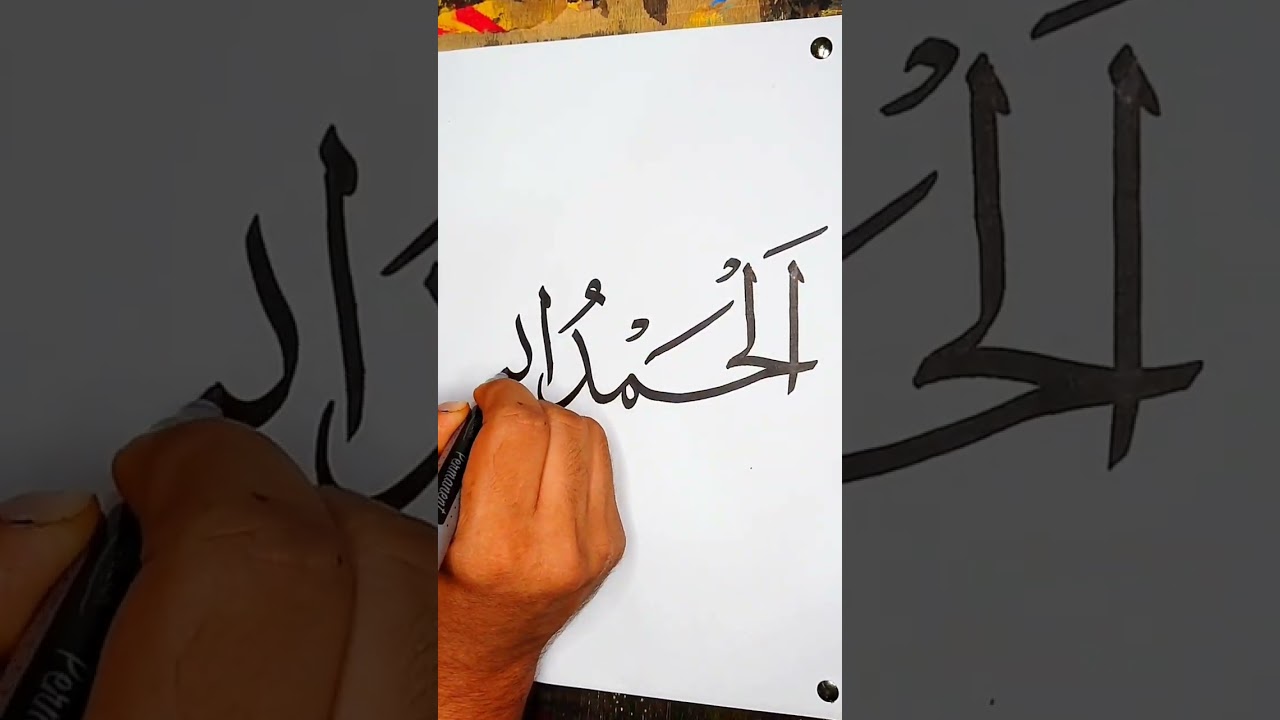 اَلْحَمْدُ
Permanent